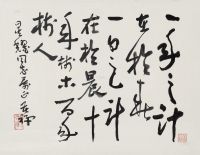 一年之计
在於春
一日之计
在於晨十
年树木百年
树人
同志